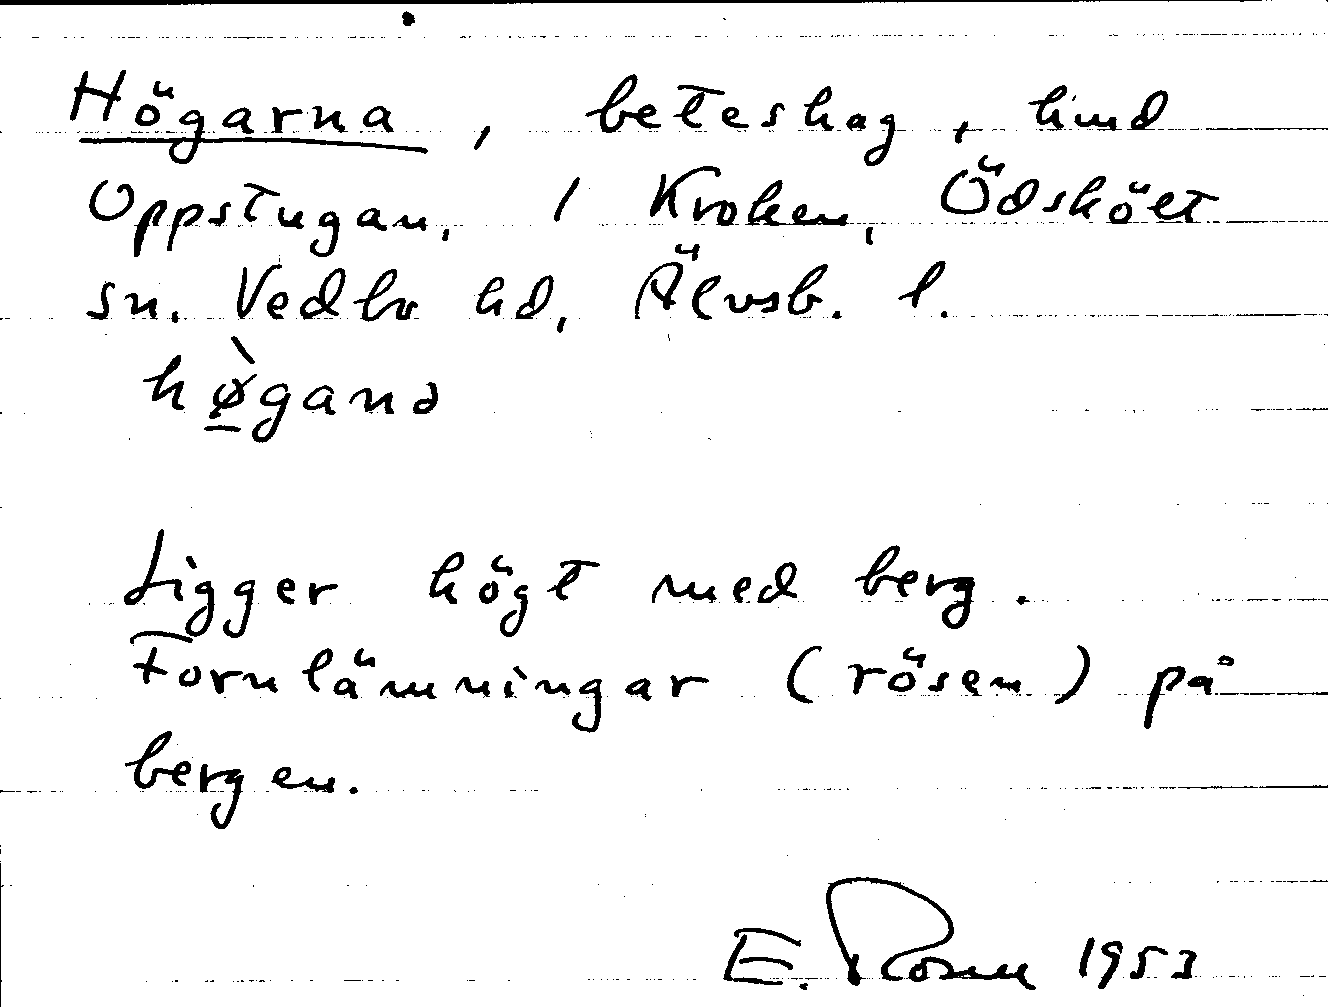 Högarna, beteshag, hmd
Oppstugan, 1 Kroken, Ödsköлt
sn. Vedbo hd, Älvsb. l.
hø̀gana
Ligger högt med berg.
Fornlämningar (rösen) på
bergen.
E. Rosen 1953